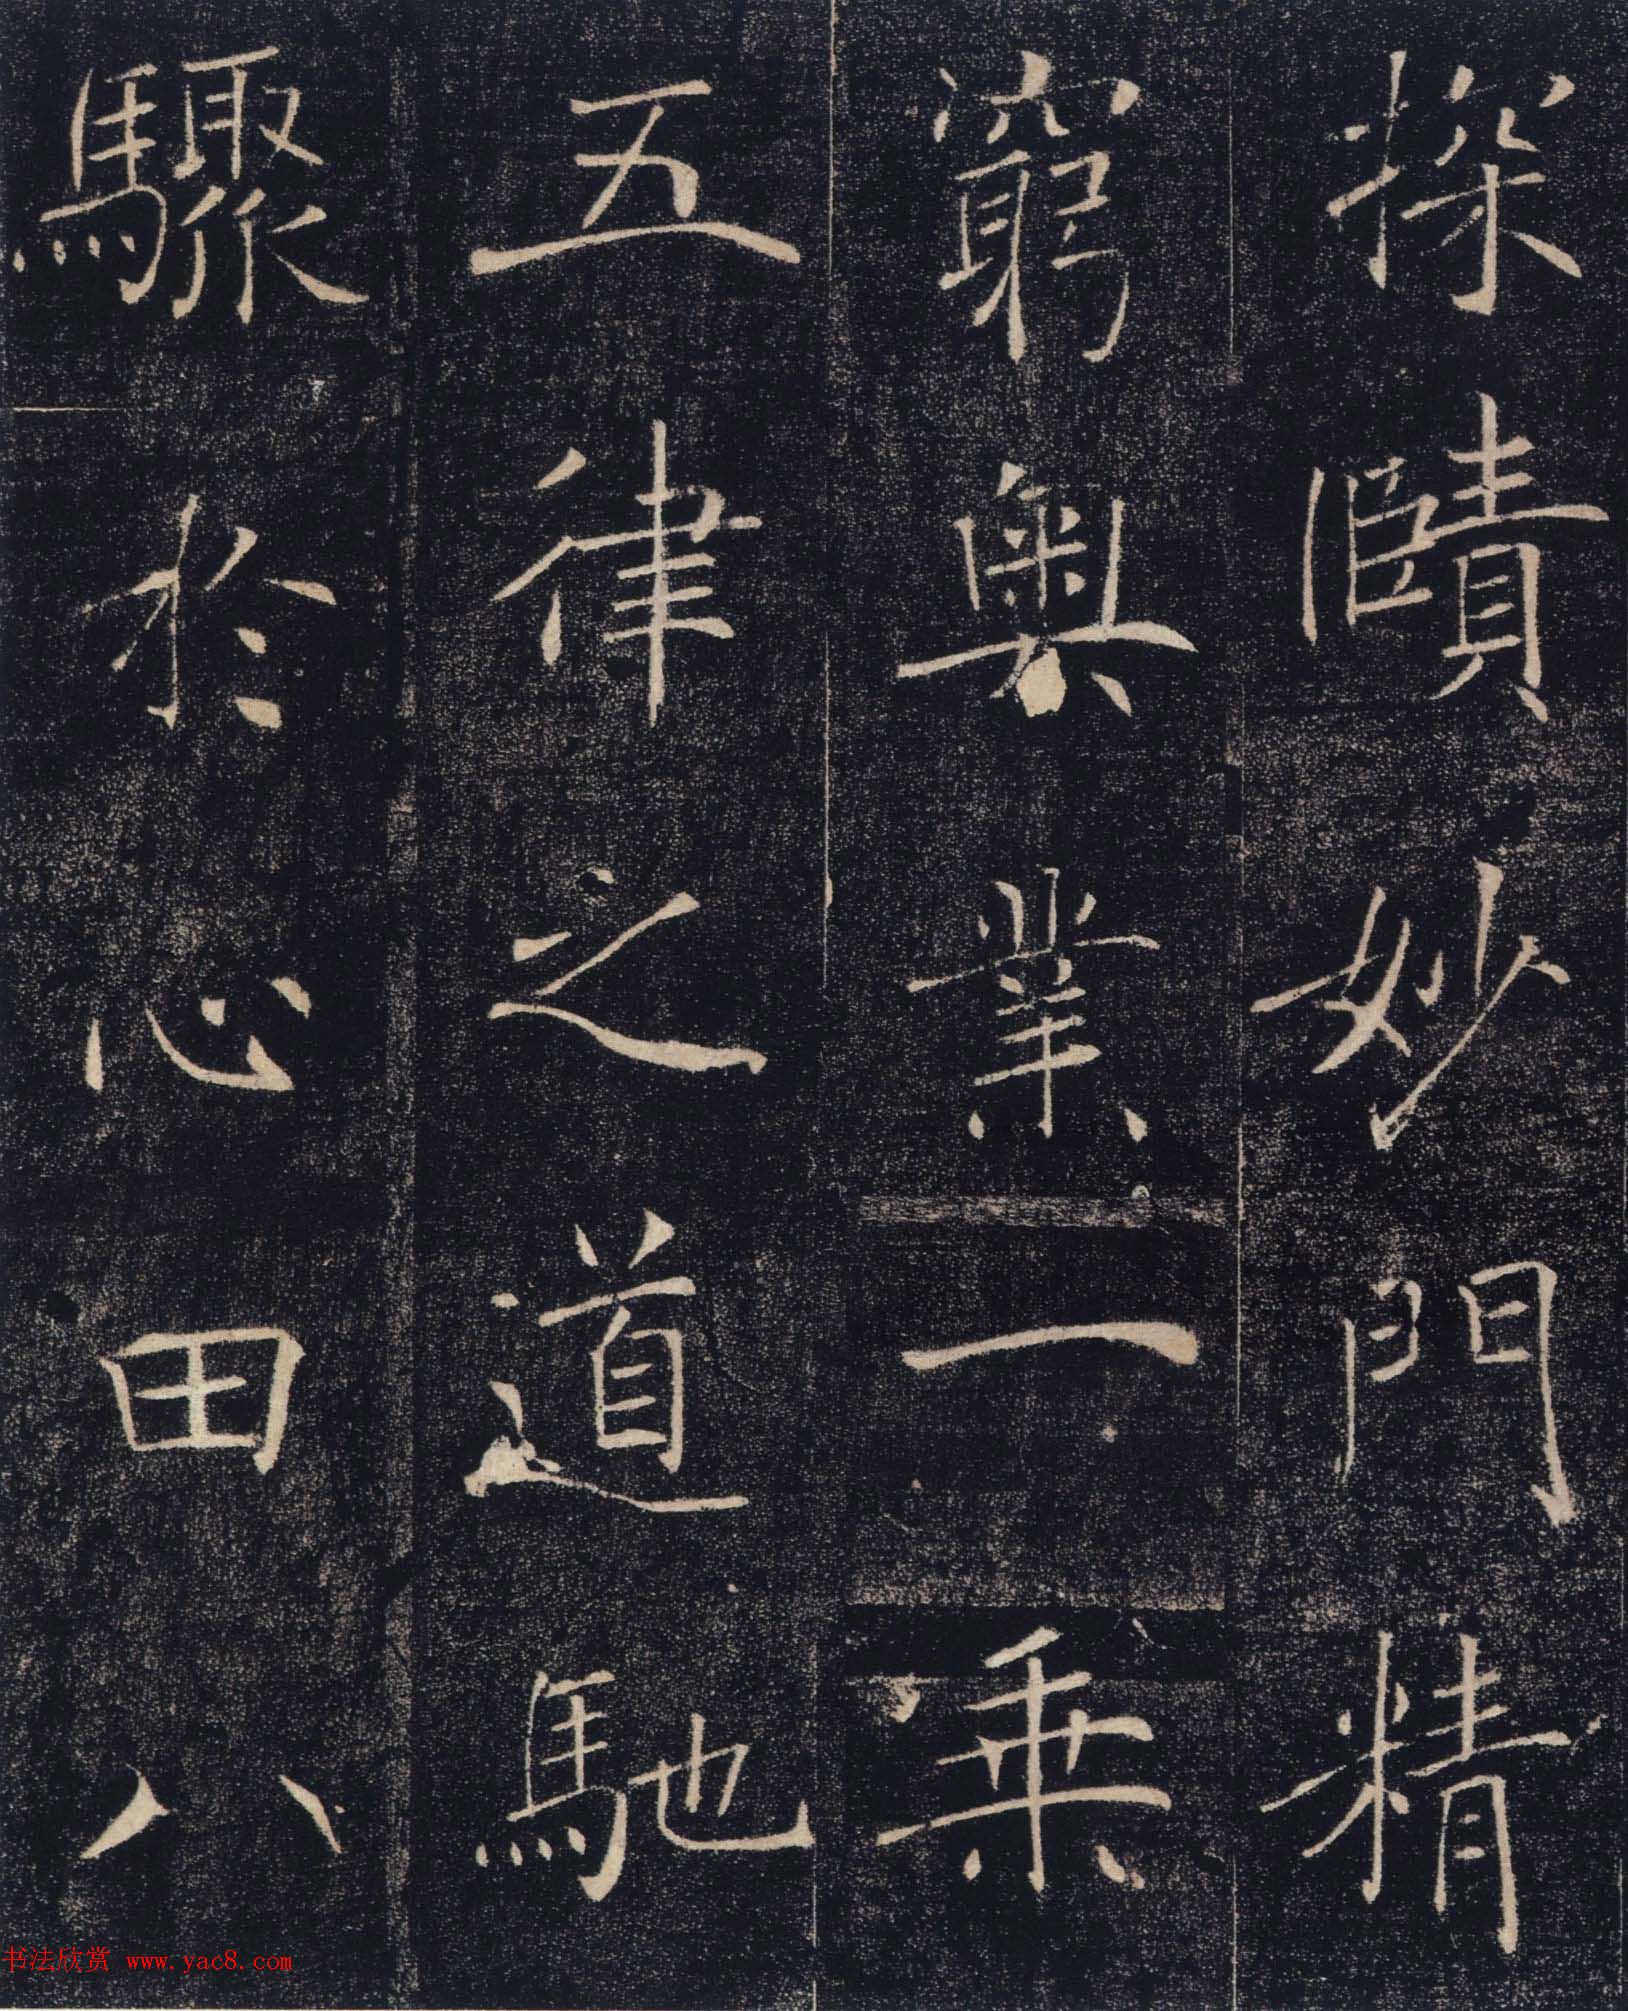 探賾妙門精
窮奧業一乘
五律之道馳
驟於心田八
书法欣赏 www.yac8.com